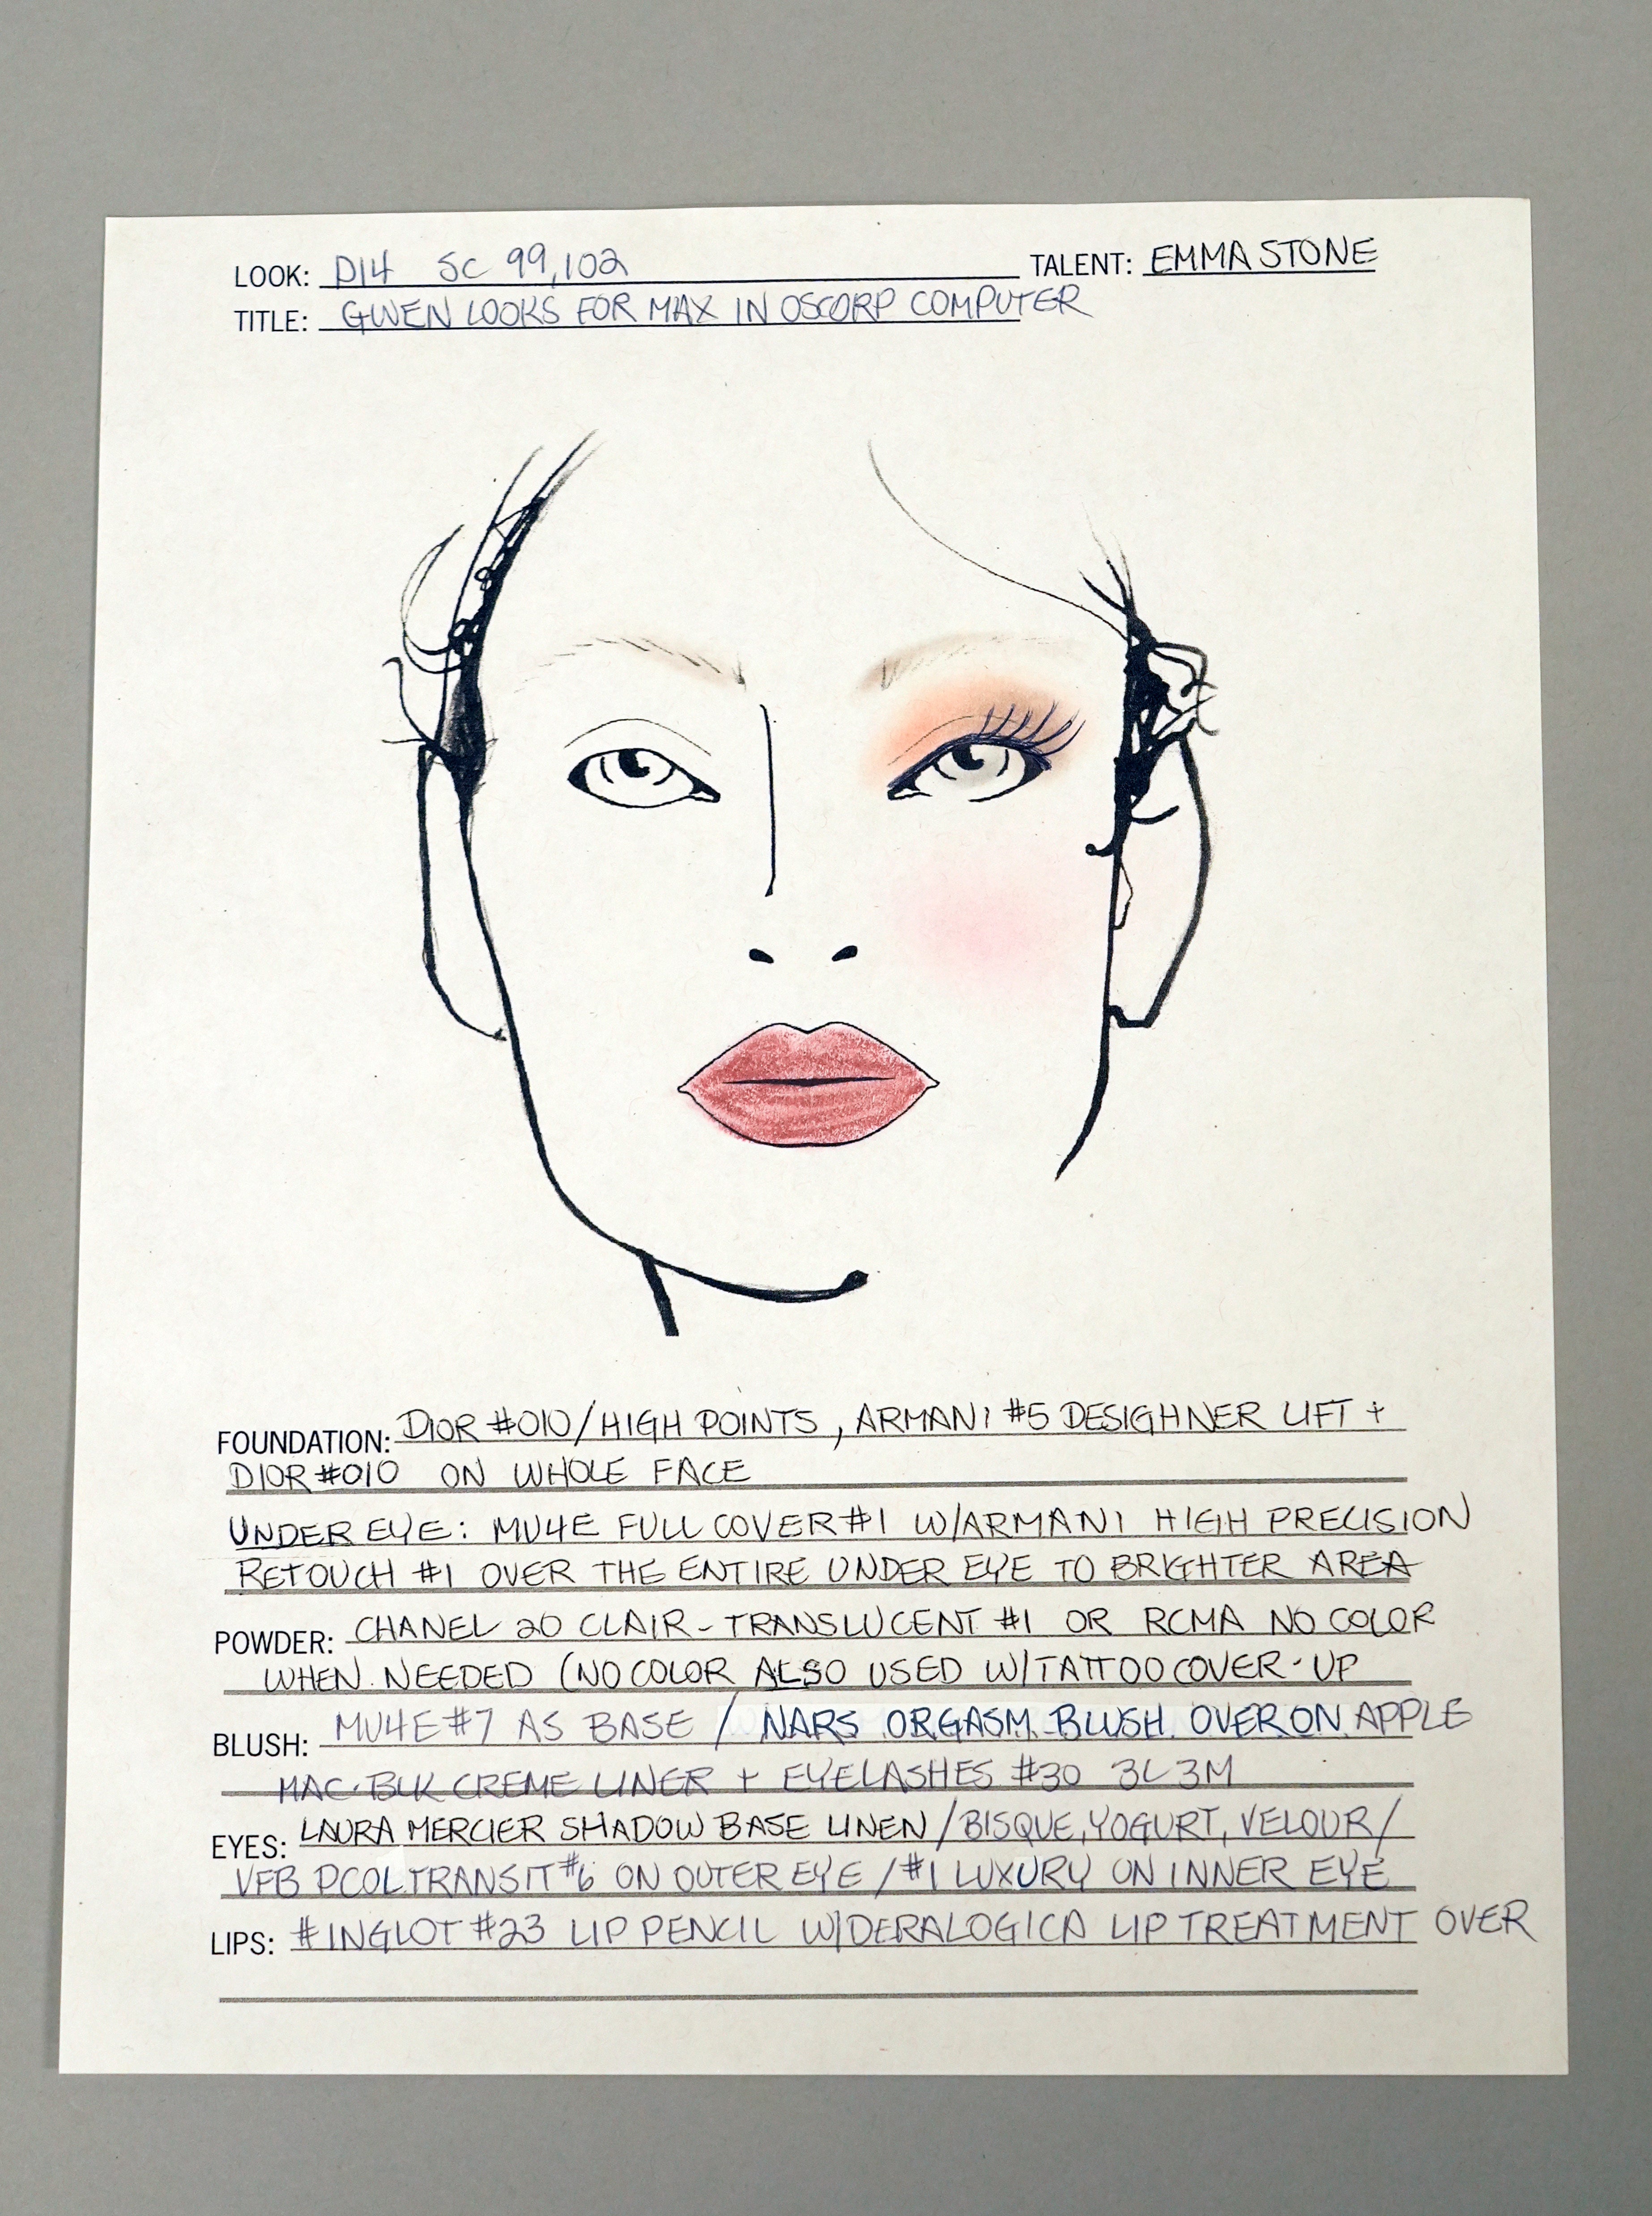 LOOK: D14 SC 99,102 TALENT: EMMA STONE
TITLE: GWEN LOOKS FOR MAX IN OSCORP COMPUTER
FOUNDATION: DIOR #010/HIGH POINTS, ARMANI #5 DESIGHNER LIFT +
DIOR #010 ON WHOLE FACE
UNDER EYE: MU4E FULL COVER #1 W/ARMANI HIGH PRECISION
RETOUCH #1 OVER THE ENTIRE UNDER EYE TO BRIGHTER AREA
POWDER: CHANEL 20 CLAIR-TRANSLUCENT #1 OR RCMA NO COLOR
WHEN NEEDED (NO COLOR ALSO USED W/TATTOO COVER-UP
BLUSH: MU4E #7 AS BASE / NARS ORGASM BLUSH OVER ON APPLE
MAC-BLK CREME LINER + EYELASHES #30 3L 3M
EYES: LAURA MERCIER SHADOW BASE LINEN/BISQUE, YOGURT, VELOUR/
VFB PCOL TRANSIT #6 ON OUTER EYE / #1 LUXURY ON INNER EYE
LIPS: #INGLOT #23 LIP PENCIL W/DERALOGICA LIP TREATMENT OVER